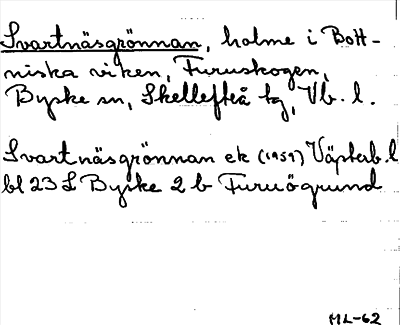 Svartnäsgrönnan, holme i Bott-
niska viken, Furuskogen,
Byske sn, Skellefteå tg, Vb. l.
Svartnäsgrönnan ek (1959) Västerb. l
bl 23 S Byske 2 b Furuögrund
ML-62